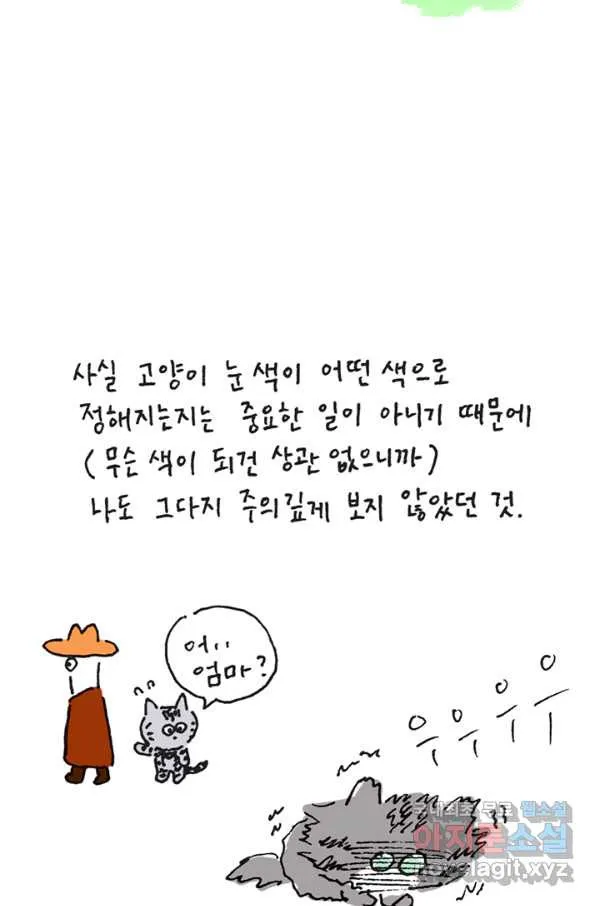 사실 고양이 눈 색이 어떤 색으로
정해지는지는 중요한 일이 아니기 때문에
(무슨 색이 되건 상관 없으니까)
나도 그다지 주의깊게 보지 않았던 것.
어..
엄마?
우우우우
국내최초 무료 웹소설
아지툰소설
novelagit.xyz